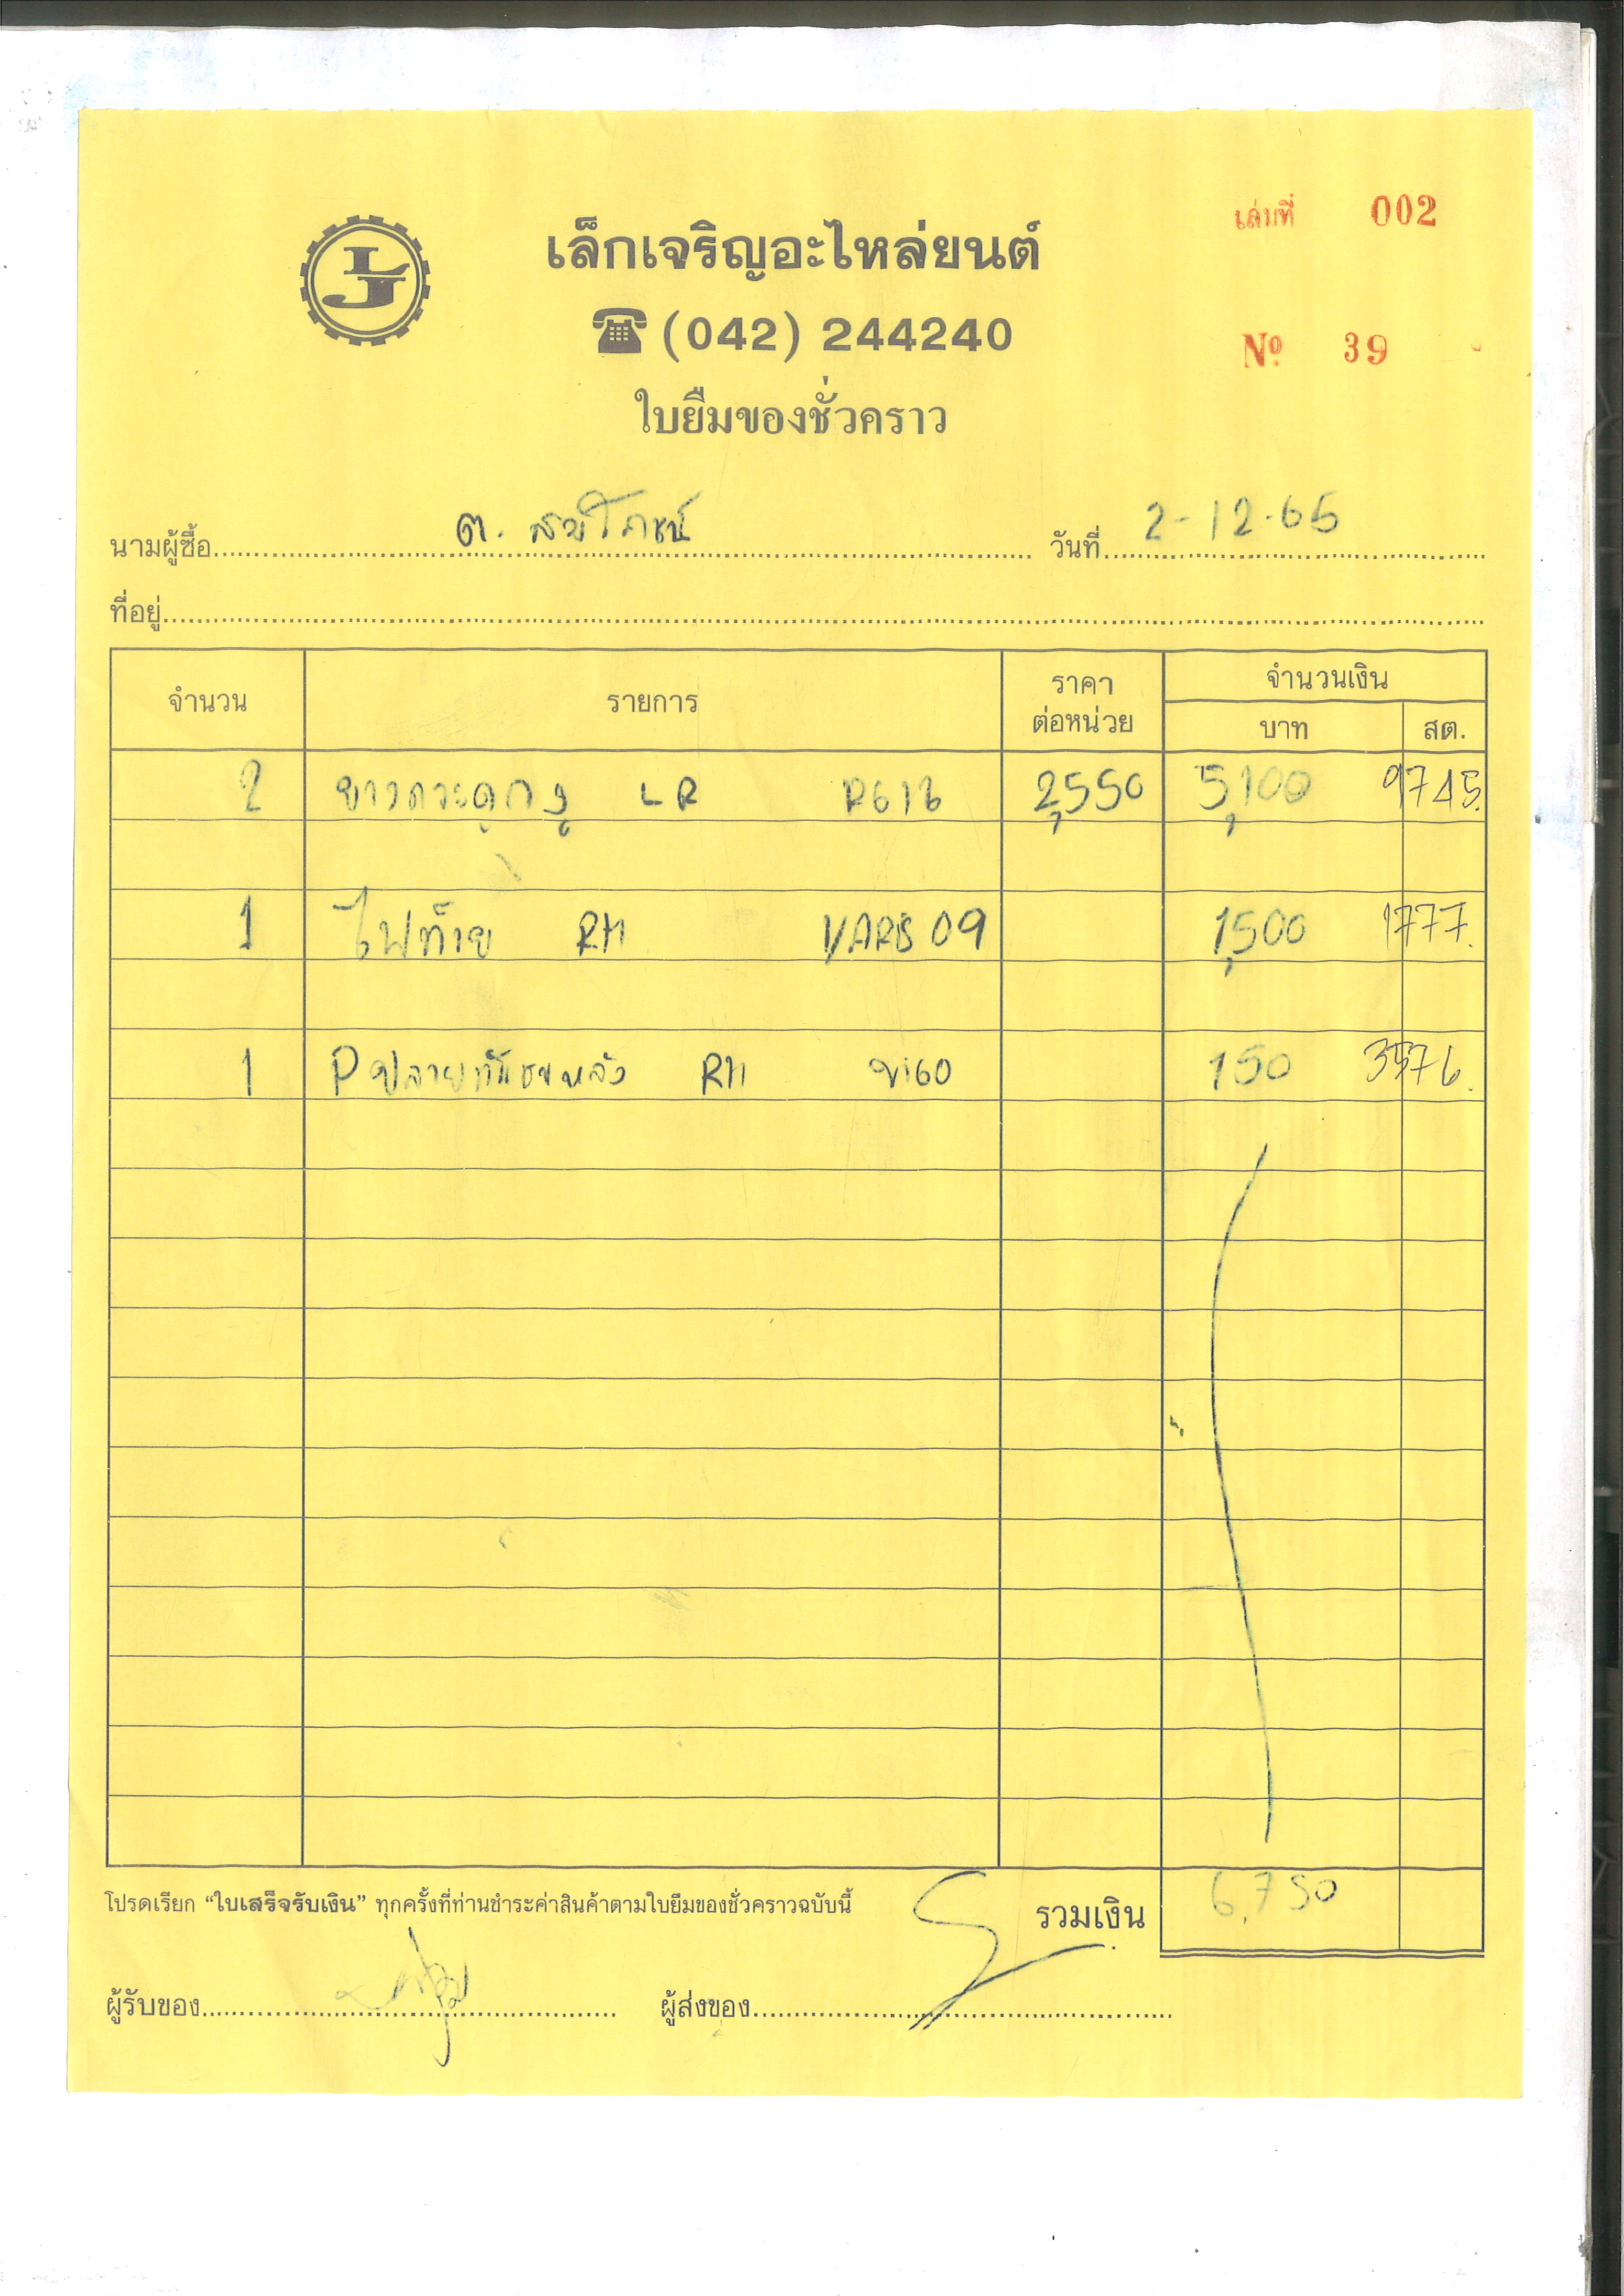 เล่มที่ 002
LJ
เล็กเจริญอะไหล่ยนต์
(042) 244240
Nº 39
ใบยืมของชั่วคราว
นามผู้ซื้อ ต. สมโภชน์ วันที่ 2-12-65
ที่อยู่
จำนวน รายการ ราคาต่อหน่วย จำนวนเงิน
บาท สต.
2 ยางกระดูกงู LR 2,550 5,100 9745.
1 ไฟท้าย RH YARIS 09 1,500 1777.
1 Pปลายกันชนหลัง RH vigo 150 3576.
โปรดเรียก “ใบเสร็จรับเงิน” ทุกครั้งที่ท่านชำระค่าสินค้าตามใบยืมของชั่วคราวฉบับนี้ รวมเงิน 6,750
ผู้รับของ ผู้ส่งของ